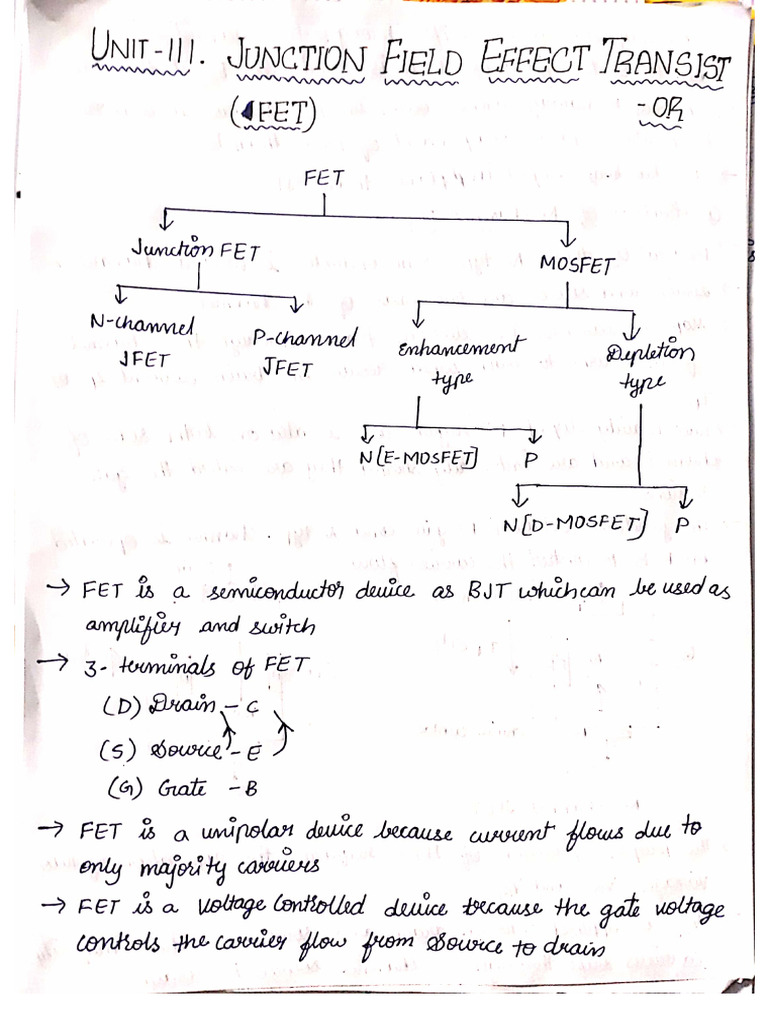 UNIT-III. JUNCTION FIELD EFFECT TRANSIST
(FET) -OR
FET
Junction FET MOSFET
N-channel JFET
P-channel JFET
Enhancement type
Depletion type
N[E-MOSFET] P
N[D-MOSFET] P
→ FET is a semiconductor device as BJT which can be used as
amplifier and switch
→ 3-terminals of FET
(D) Drain - C
(S) Source - E
(G) Gate - B
→ FET is a unipolar device because current flows due to
only majority carriers
→ FET is a voltage controlled device because the gate voltage
controls the carrier flow from source to drain